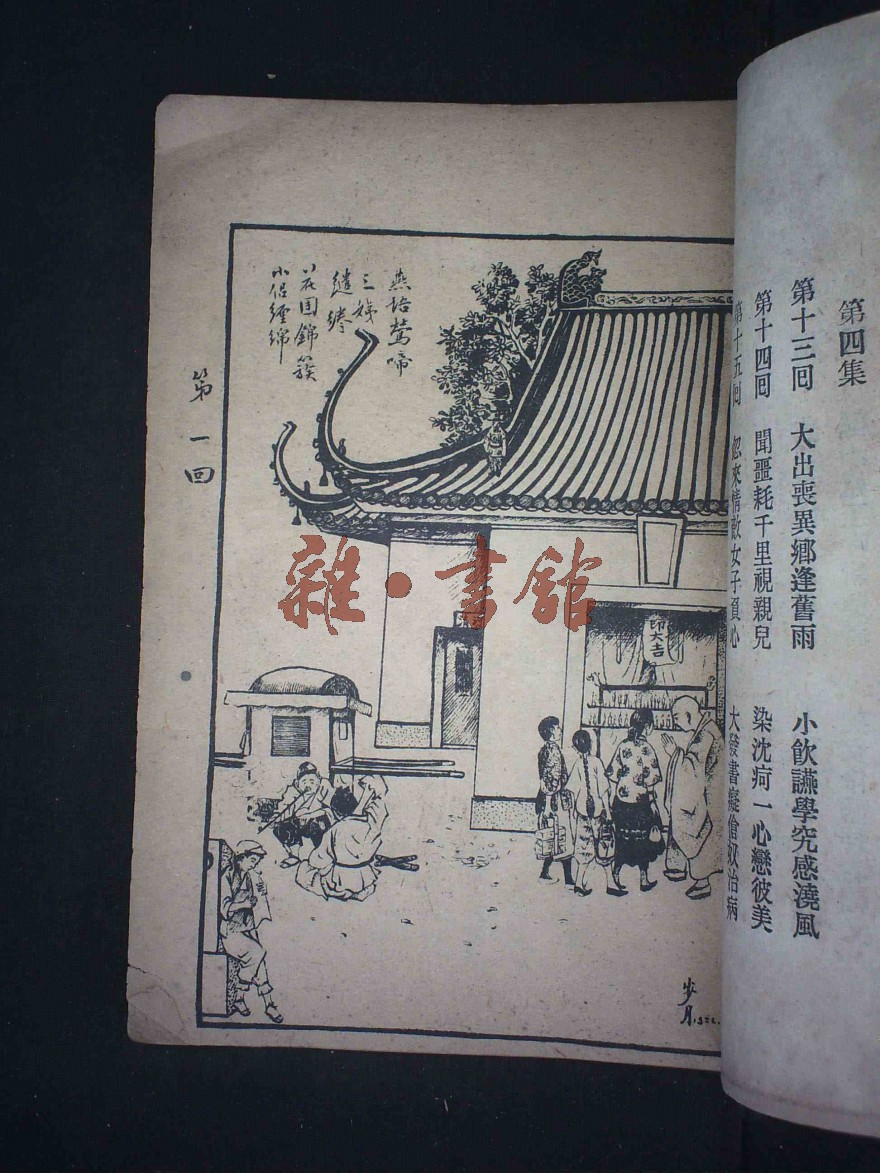 第四集
第十三回 大出喪異鄉逢舊雨 小飲讌學究感澆風
第十四回 聞噩耗千里視親兒 染沈疴一心戀彼美
第十五回 忽來情敵女子負心 大發書癡傖奴治病
燕語鶯啼
三媒
繾綣
花團錦簇
小侶纏綿
第一回
雜·書館
印大吉
步月